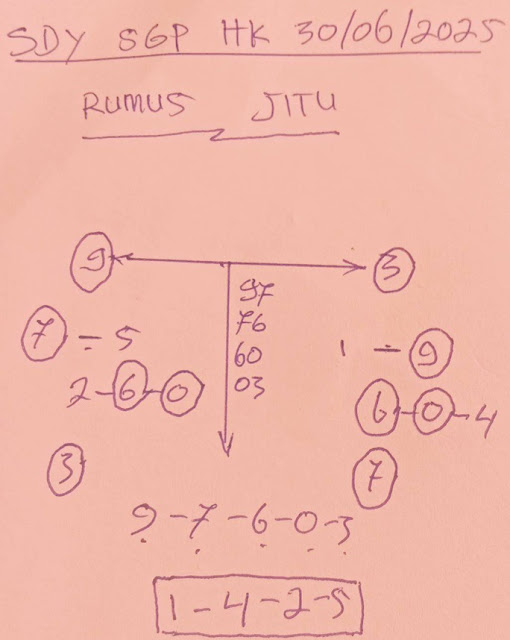 SDY SGP HK 30/06/2025
RUMUS JITU
9 3
97
76
7 = 5
60
1 - 9
2-6-0
03
6-0-4
3
7
9-7-6-0-3
1-4-2-5